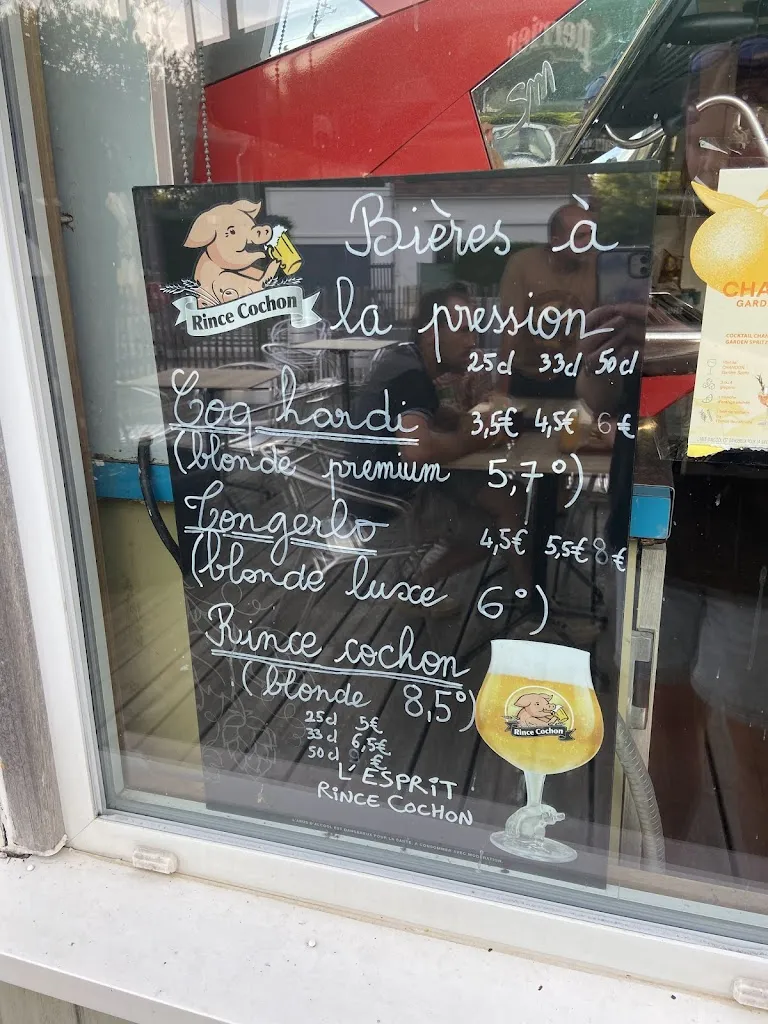 Perrier
Rince Cochon
Bières à
la pression
25cl 33cl 50cl
Coq hardi 3,5€ 4,5€ 6€
(blonde premium 5,7°)
Tongerlo 4,5€ 5,5€ 8€
(blonde luxe 6°)
Rince cochon
(blonde 8,5°)
25cl 5€
33cl 6,5€
50cl €
L'ESPRIT
RINCE COCHON
Rince Cochon
L'ABUS D'ALCOOL EST DANGEREUX POUR LA SANTÉ, À CONSOMMER AVEC MODÉRATION
CHA
GARD
COCKTAIL CHAN
GARDEN SPRITZ